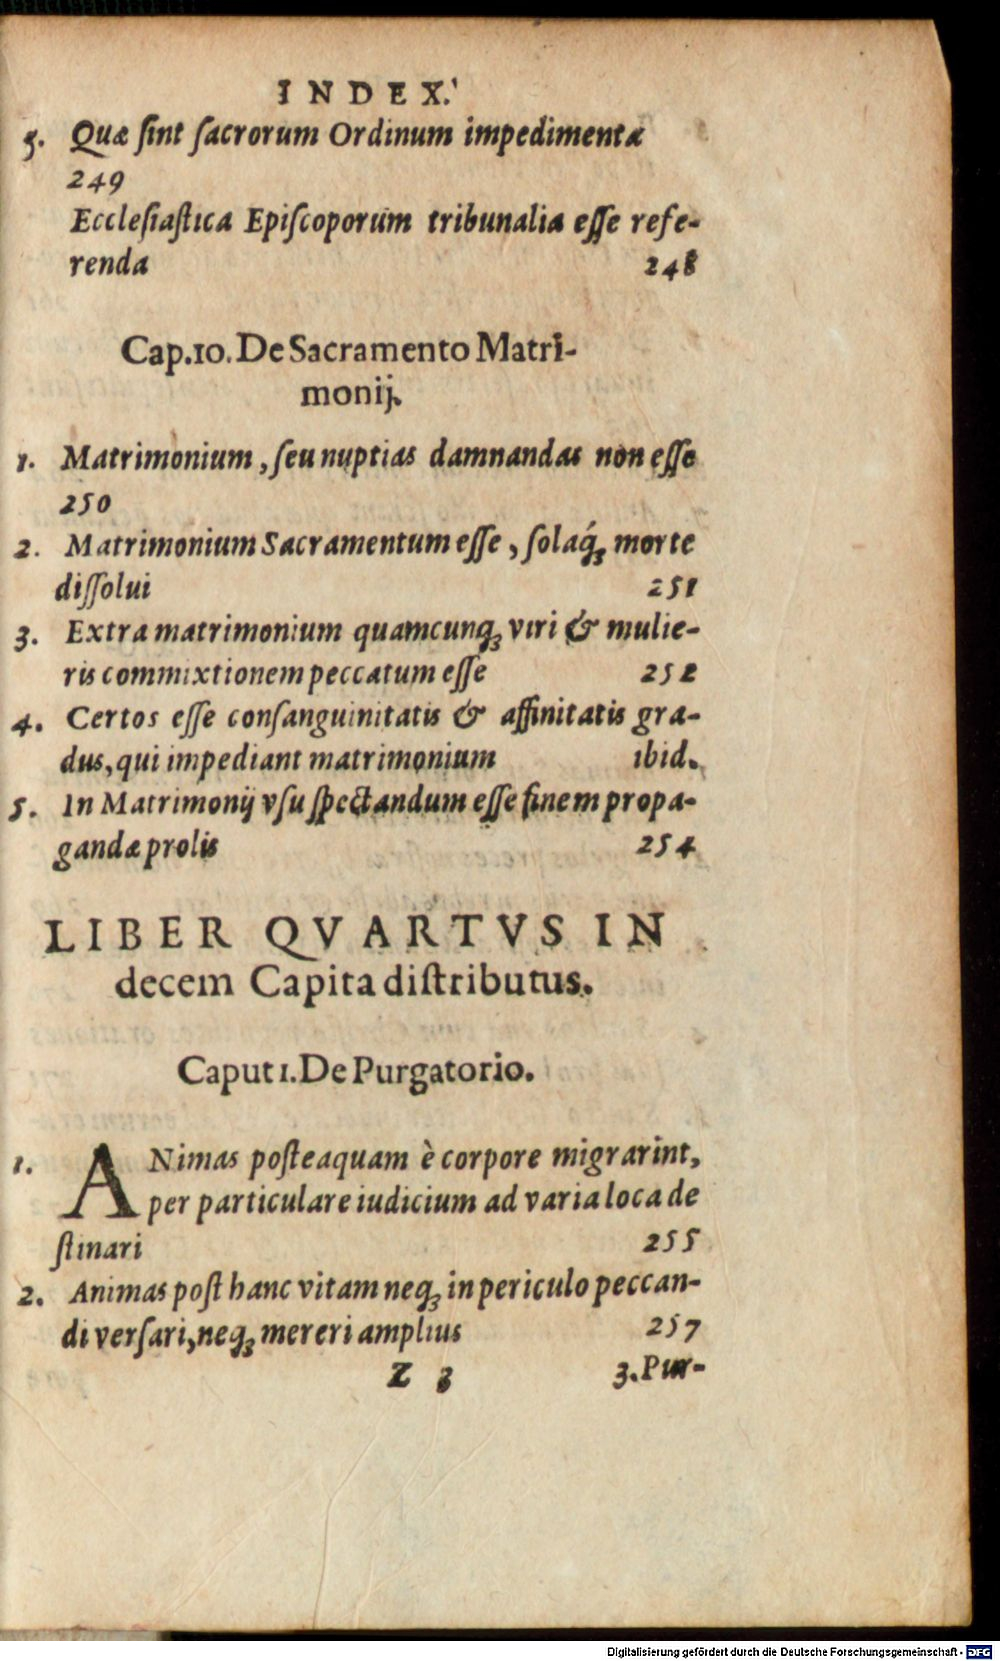 INDEX.
5. Quæ ſint ſacrorum Ordinum impedimenta
249
Eccleſiaſtica Epiſcoporum tribunalia eſſe refe-
renda 248
Cap.10. De Sacramento Matri-
monij.
1. Matrimonium, ſeu nuptias damnandas non eſſe
250
2. Matrimonium Sacramentum eſſe, ſolaq́ꝫ morte
diſſolui 251
3. Extra matrimonium quamcunqꝫ viri & mulie-
ris commixtionem peccatum eſſe 252
4. Certos eſſe conſanguinitatis & affinitatis gra-
dus, qui impediant matrimonium ibid.
5. In Matrimonij vſu ſpectandum eſſe finem propa-
gandæ prolis 254
LIBER QVARTVS IN
decem Capita diſtributus.
Caput 1. De Purgatorio.
1. ANimas poſteaquam è corpore migrarint,
per particulare iudicium ad varia loca de
ſtinari 255
2. Animas poſt hanc vitam neqꝫ in periculo peccan-
di verſari, neqꝫ mereri amplius 257
Z 3 3. Pur-
Digitalisierung gefördert durch die Deutsche Forschungsgemeinschaft - DFG